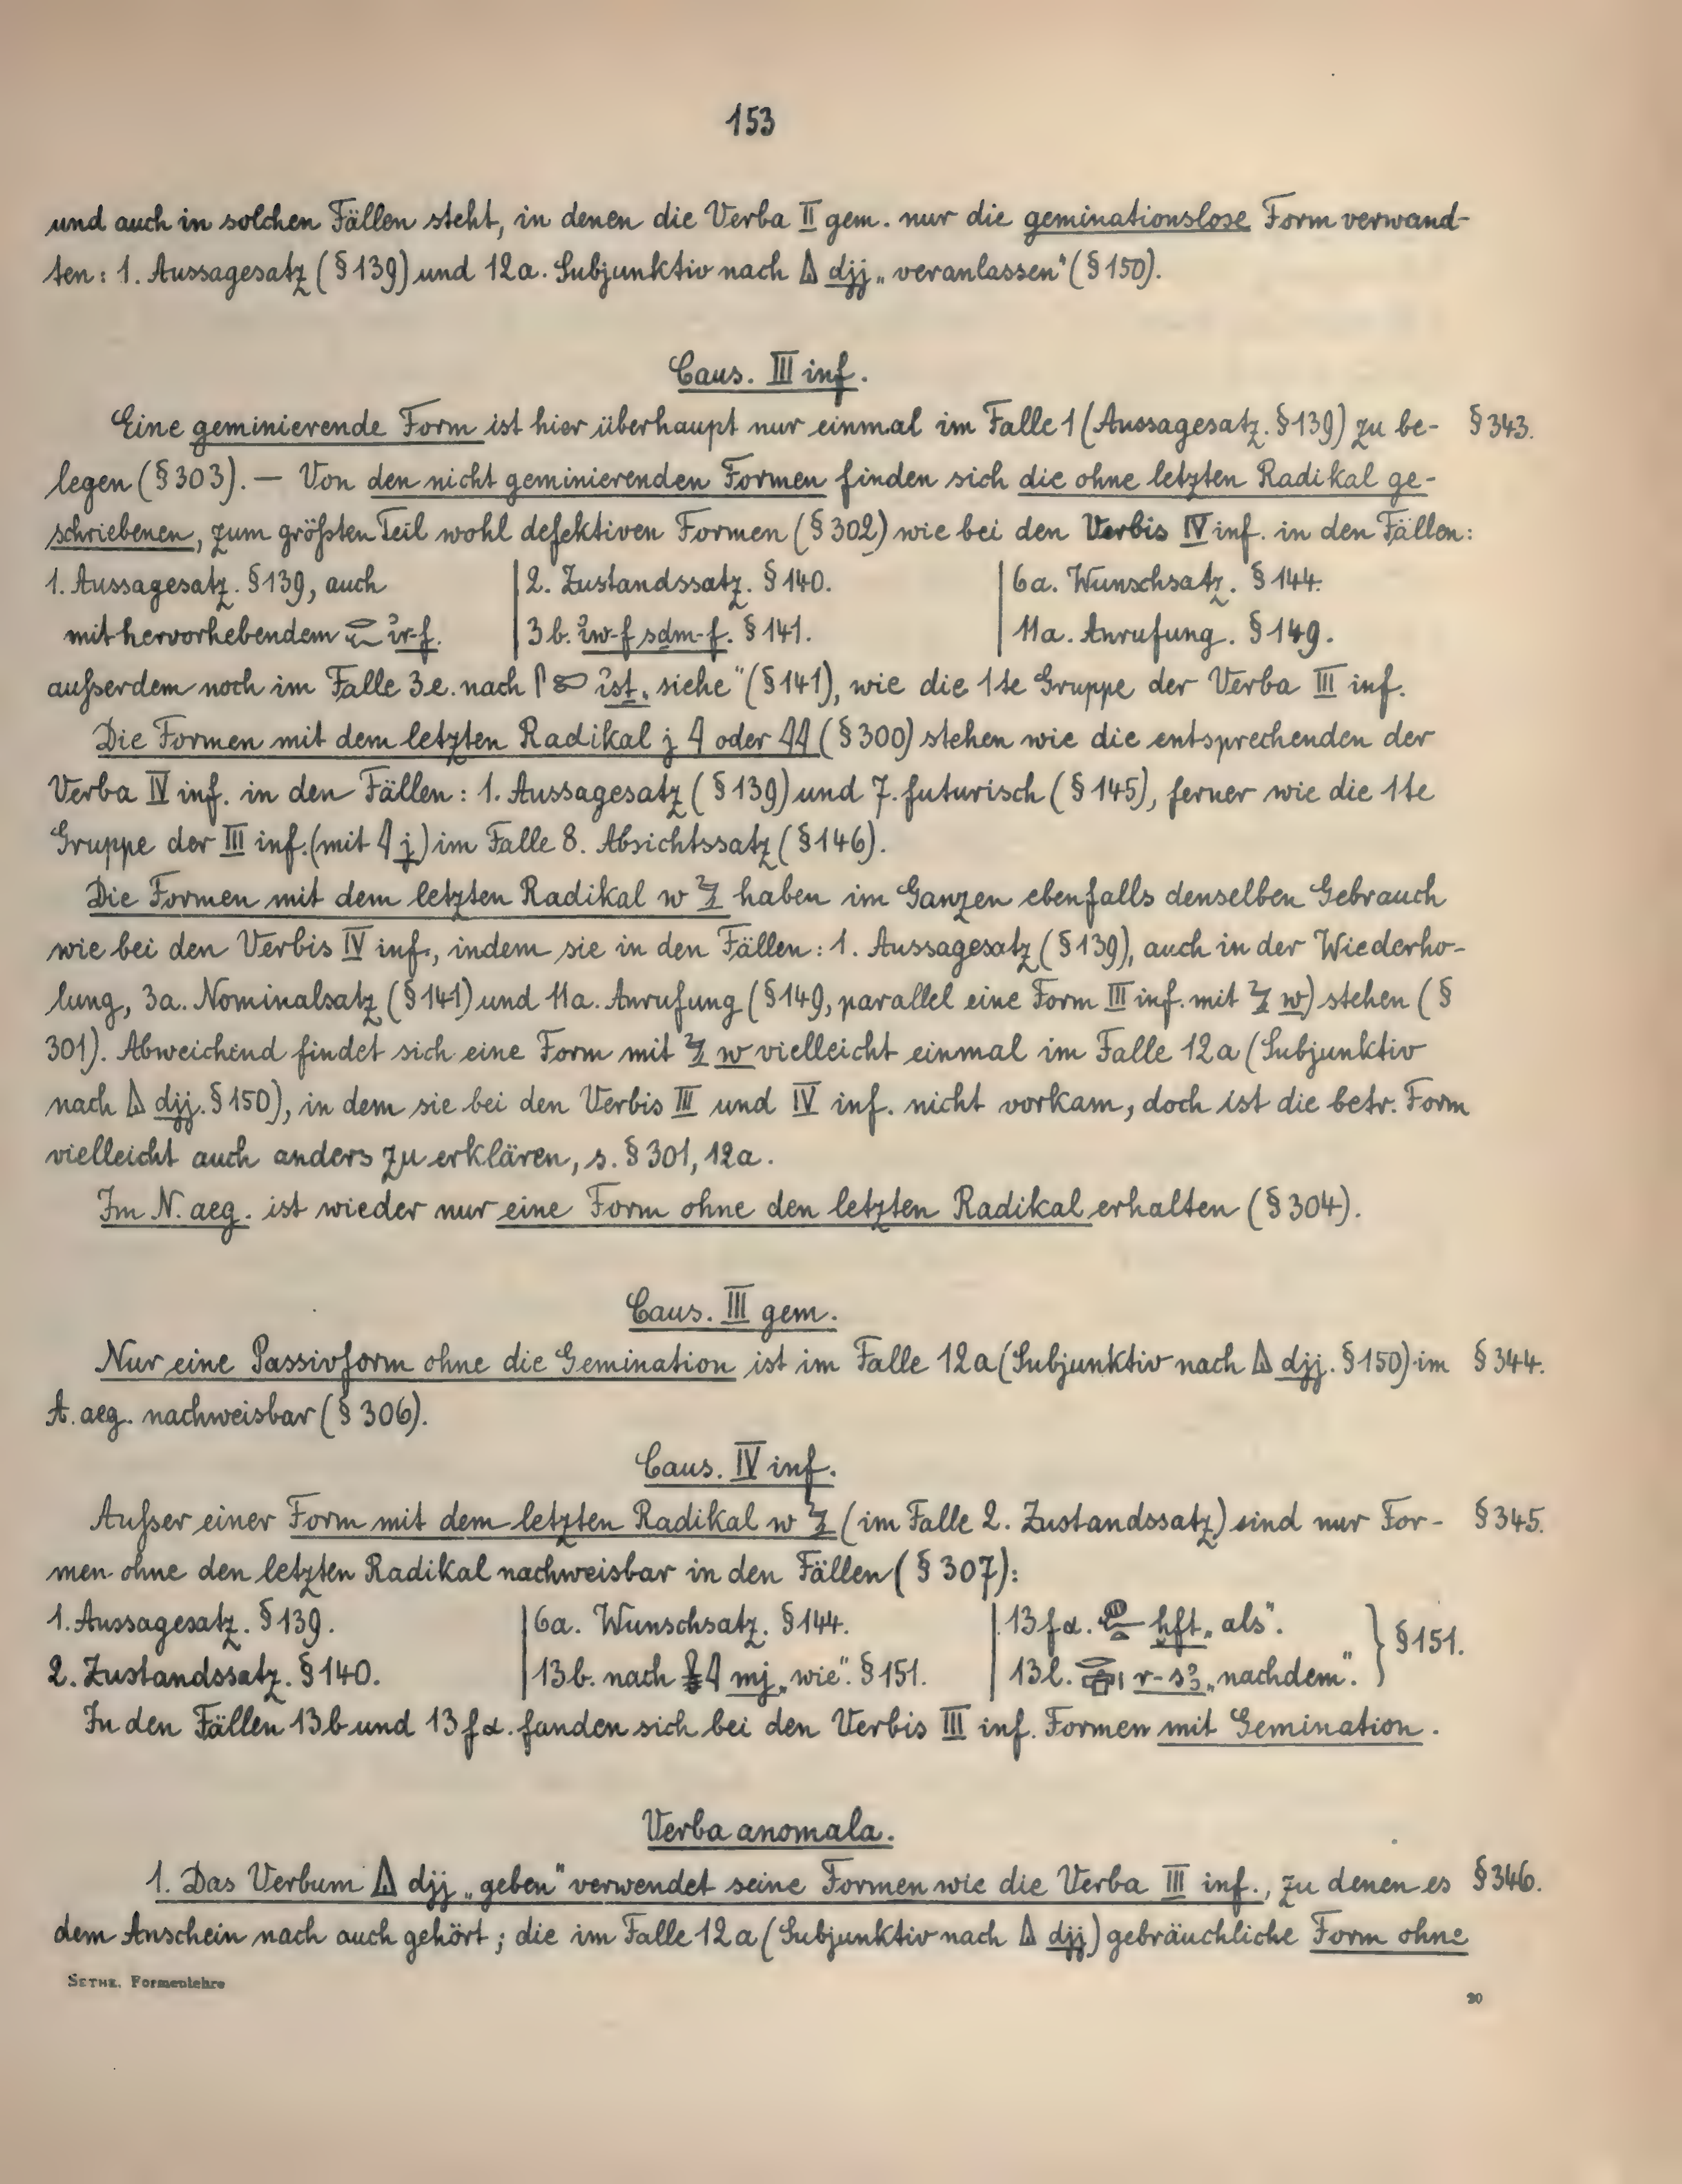 153
und auch in solchen Fällen steht, in denen die Verba II gem. nur die geminationslose Form verwand-
ten: 1. Aussagesatz (§ 139) und 12a. Subjunktiv nach djj „veranlassen“ (§ 150).
Caus. III inf.
Eine geminierende Form ist hier überhaupt nur einmal im Falle 1 (Aussagesatz. § 139) zu be- § 343.
legen (§ 303). — Von den nicht geminierenden Formen finden sich die ohne letzten Radikal ge-
schriebenen, zum größten Teil wohl defektiven Formen (§ 302) wie bei den Verbis IV inf. in den Fällen:
1. Aussagesatz. § 139, auch | 2. Zustandssatz. § 140. | 6a. Wunschsatz. § 144.
mit hervorhebendem 𓂋𓆑 ꞽr-f. | 3b. ꞽw-f sdm-f. § 141. | 11a. Anrufung. § 149.
außerdem noch im Falle 3e. nach ꞽst „siehe“ (§ 141), wie die 1te Gruppe der Verba III inf.
Die Formen mit dem letzten Radikal j 𓇋 oder 𓇋𓇋 (§ 300) stehen wie die entsprechenden der
Verba IV inf. in den Fällen: 1. Aussagesatz (§ 139) und 7. futurisch (§ 145), ferner wie die 1te
Gruppe der III inf. (mit 𓇋 j) im Falle 8. Absichtssatz (§ 146).
Die Formen mit dem letzten Radikal w 𓅱 haben im Ganzen ebenfalls denselben Gebrauch
wie bei den Verbis IV inf., indem sie in den Fällen: 1. Aussagesatz (§ 139), auch in der Wiederho-
lung, 3a. Nominalsatz (§ 141) und 11a. Anrufung (§ 149, parallel eine Form III inf. mit 𓅱 w) stehen (§
301). Abweichend findet sich eine Form mit 𓅱 w vielleicht einmal im Falle 12a (Subjunktiv
nach djj. § 150), in dem sie bei den Verbis III und IV inf. nicht vorkam, doch ist die betr. Form
vielleicht auch anders zu erklären, s. § 301, 12a.
Im N. aeg. ist wieder nur eine Form ohne den letzten Radikal erhalten (§ 304).
Caus. III gem.
Nur eine Passivform ohne die Gemination ist im Falle 12a (Subjunktiv nach djj. § 150) im § 344.
A. aeg. nachweisbar (§ 306).
Caus. IV inf.
Außer einer Form mit dem letzten Radikal w 𓅱 (im Falle 2. Zustandssatz) sind nur For- § 345.
men ohne den letzten Radikal nachweisbar in den Fällen (§ 307):
1. Aussagesatz. § 139. | 6a. Wunschsatz. § 144. | 13fα. ḫft „als“. } § 151.
2. Zustandssatz. § 140. | 13b. nach mj „wie“. § 151. | 13l. r-sꜣ „nachdem“.
In den Fällen 13b und 13fα. fanden sich bei den Verbis III inf. Formen mit Gemination.
Verba anomala.
1. Das Verbum djj „geben“ verwendet seine Formen wie die Verba III inf., zu denen es § 346.
dem Anschein nach auch gehört; die im Falle 12a (Subjunktiv nach djj) gebräuchliche Form ohne
SETHE. Formenlehre
20